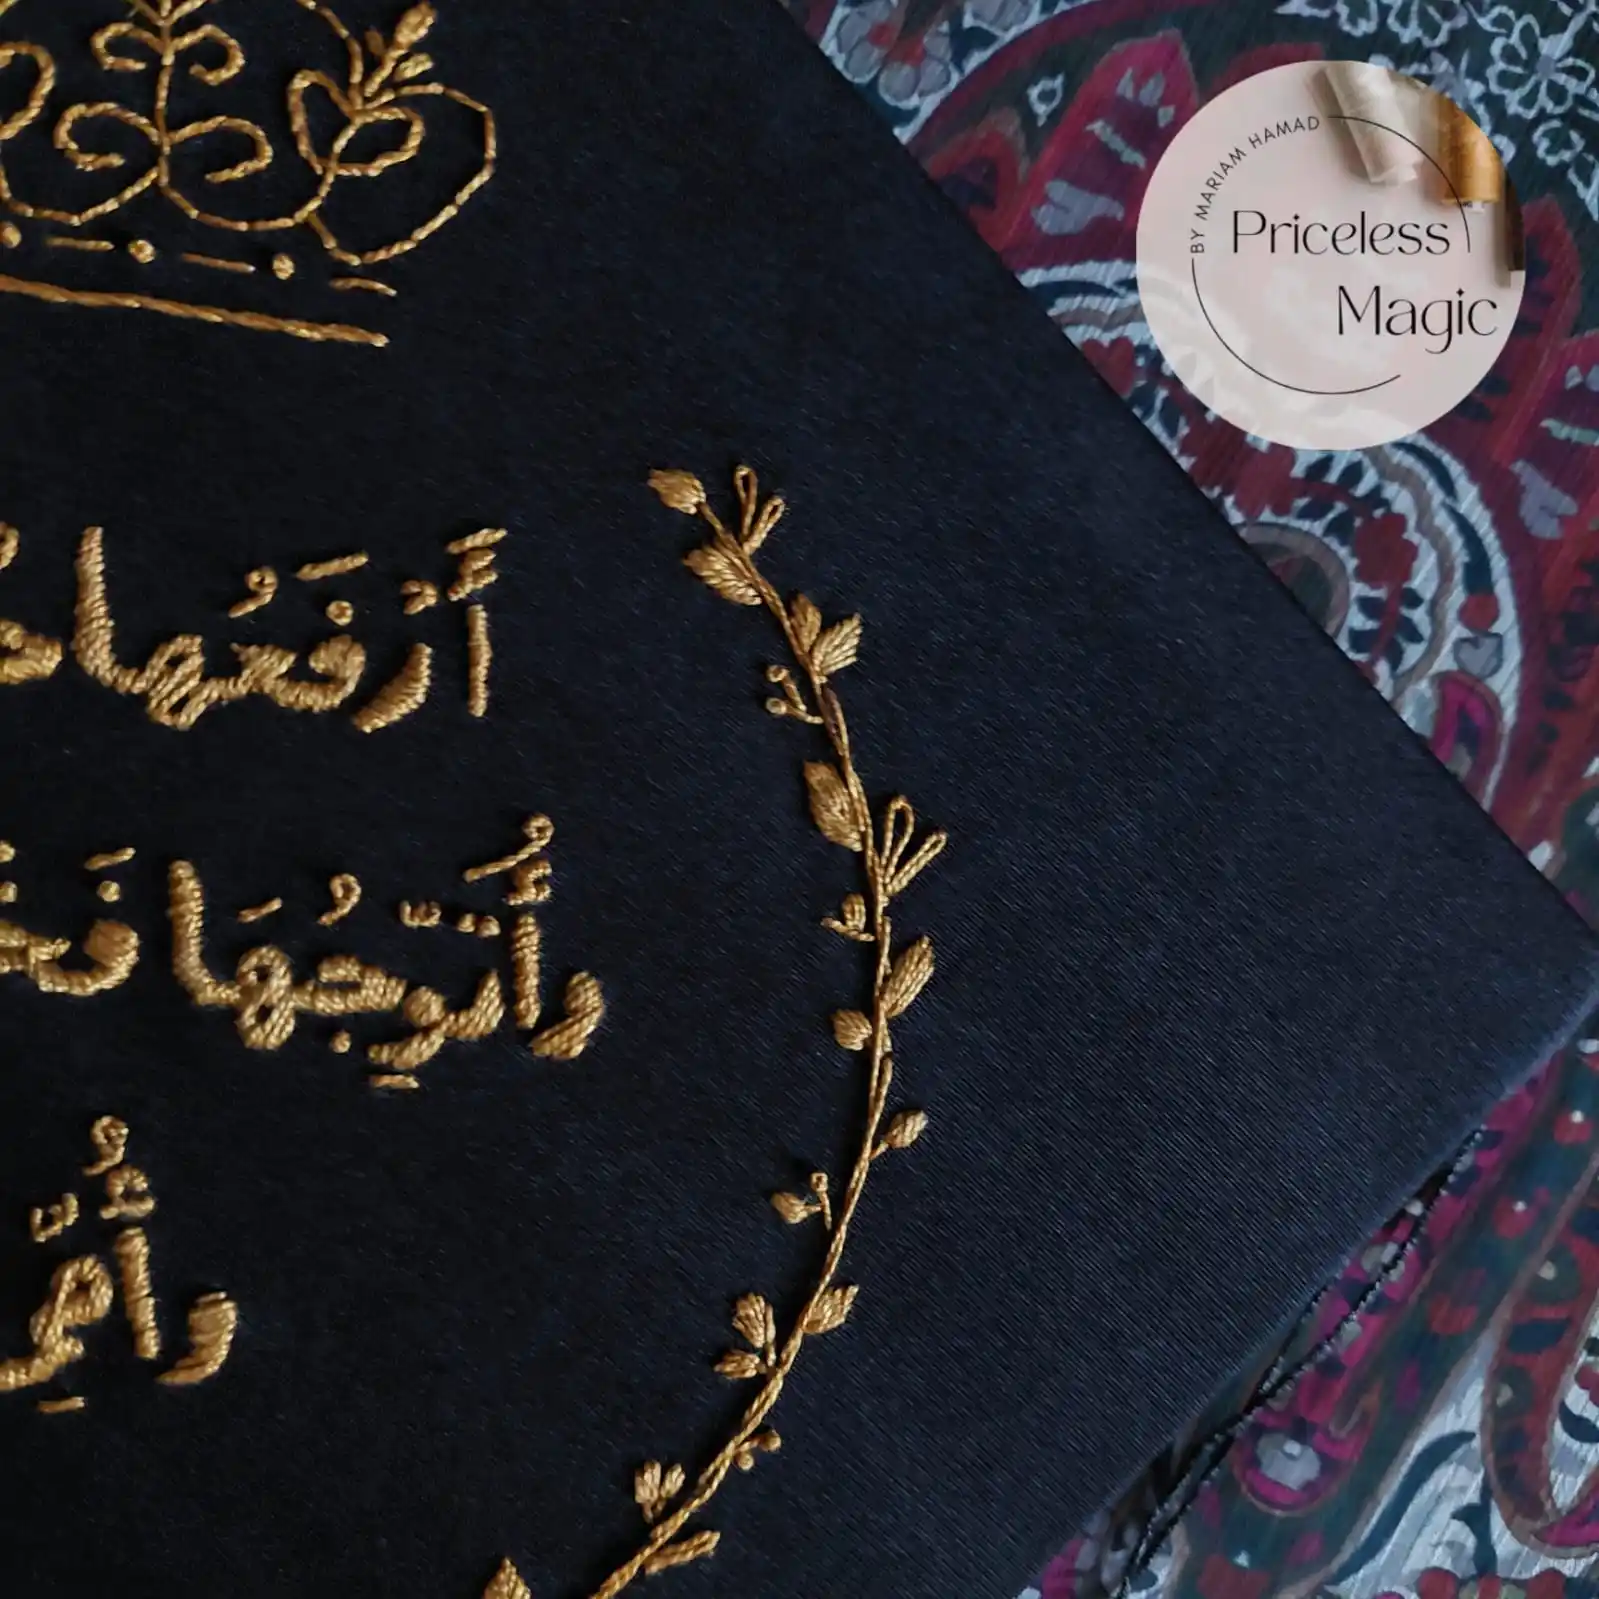 BY MARIAM HAMAD
Priceless
Magic
أَرْفَعُها
وأُتوِّجُهَا